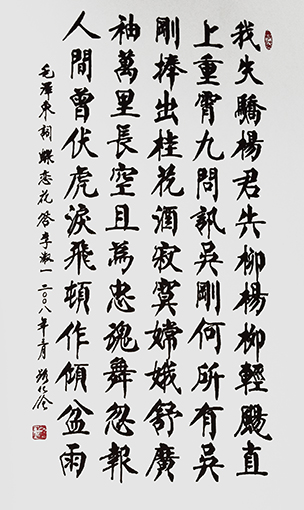 我失驕楊君失柳楊柳輕颺直
上重霄九問訊吳剛何所有吳
剛捧出桂花酒寂寞嫦娥舒廣
袖萬里長空且為忠魂舞忽報
人間曾伏虎淚飛頓作傾盆雨
毛澤東詞蝶恋花答李淑一二〇〇八年